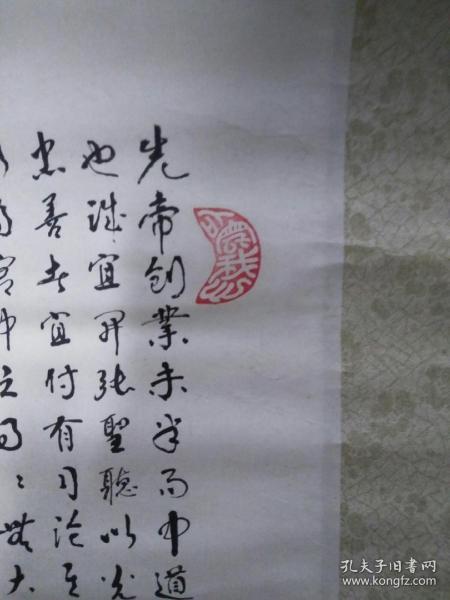 先帝创業未半而中道
也誠宜開張聖聽以光
忠善者宜付有司論其
宫中之事事無大
孔夫子旧书网
www.kongfz.com